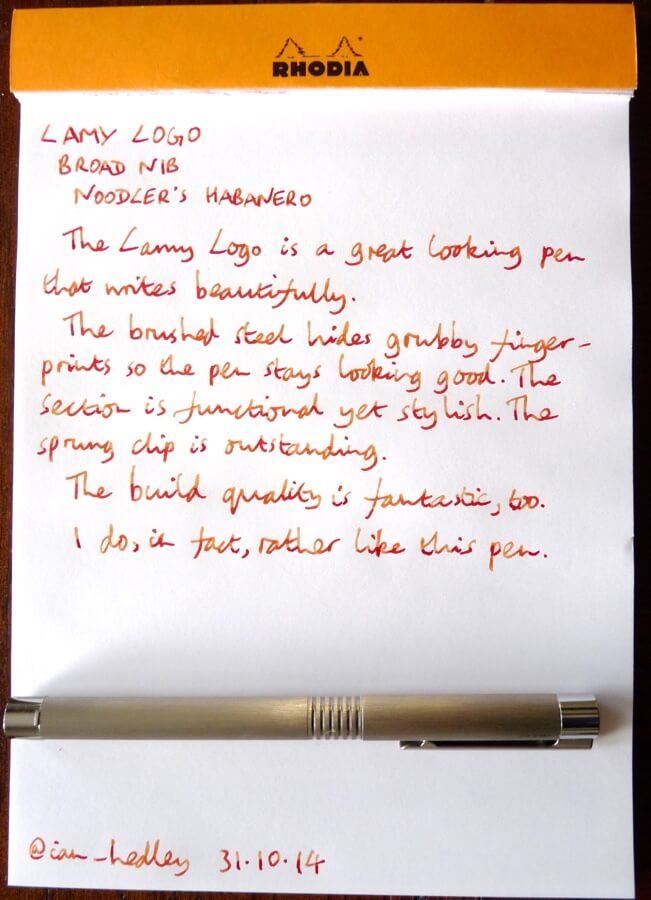 RHODIA
LAMY LOGO
BROAD NIB
NOODLER'S HABANERO
The Lamy Logo is a great looking pen
that writes beautifully.
The brushed steel hides grubby finger-
prints so the pen stays looking good. The
section is functional yet stylish. The
sprung clip is outstanding.
The build quality is fantastic, too.
I do, in fact, rather like this pen.
@ian_hedley 31.10.14